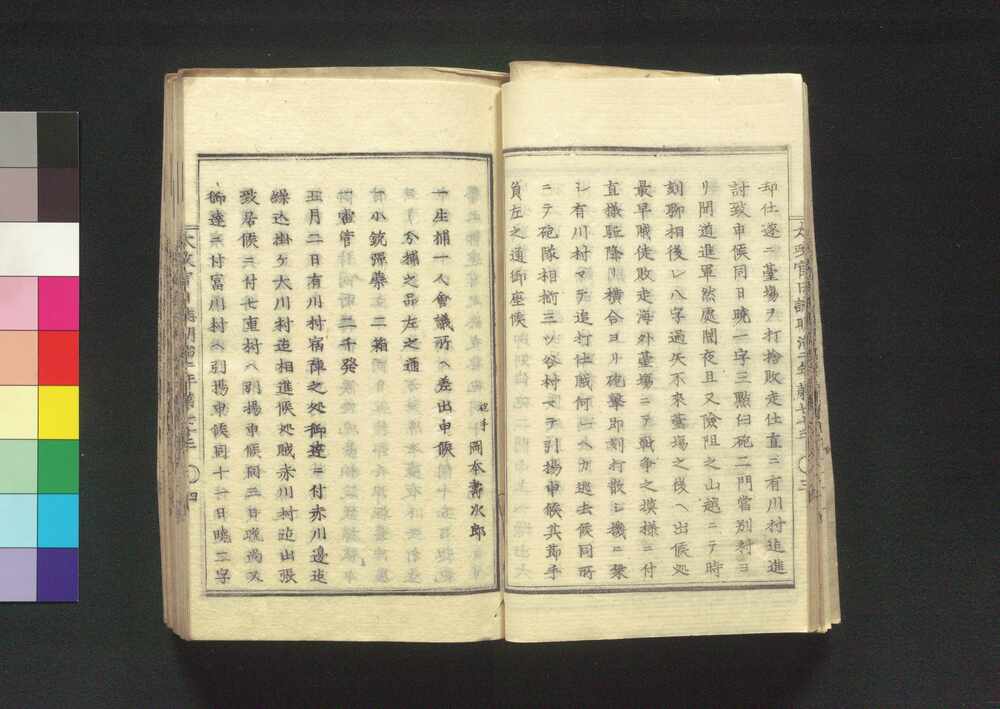 却仕邊ニ臺場ヲ打捨敗走仕直ニ有川村迄進
討致申候同日曉一字三點臼砲二門當別村ヨ
リ間道進軍然處闇夜且又險阻之山越ニテ時
刻聊相後レ八字過矢不來臺場之後ヘ出候処
最早賊徒敗走海外臺場ニテ戰争之模樣ニ付
直樣駈降リ横合ヨリ砲撃即刻打散シ機ニ乗
シ有川村マテ追打仕賊何レヘカ逃去候同所
ニテ砲隊相揃三ツ谷村マテ引揚申候其節手
負左之通御座候
砲手 岡本壽次郎
一生捕一人會議所ヘ差出申候
分捕之品左之通
一小銃彈藥 二箱
一雷管 二千發
五月二日有川村宿陣之処御達ニ付赤川邊迄
繰込掛ケ大川村迄相進候処賊赤川村迄出張
致居候ニ付七重村ヘ引揚申候同三日晩過又
御達ニ付富川村ヘ引揚申候同十一日曉二字
太政官日誌明治二年第七十三 〇三
太政官日誌明治二年第七十三 〇四